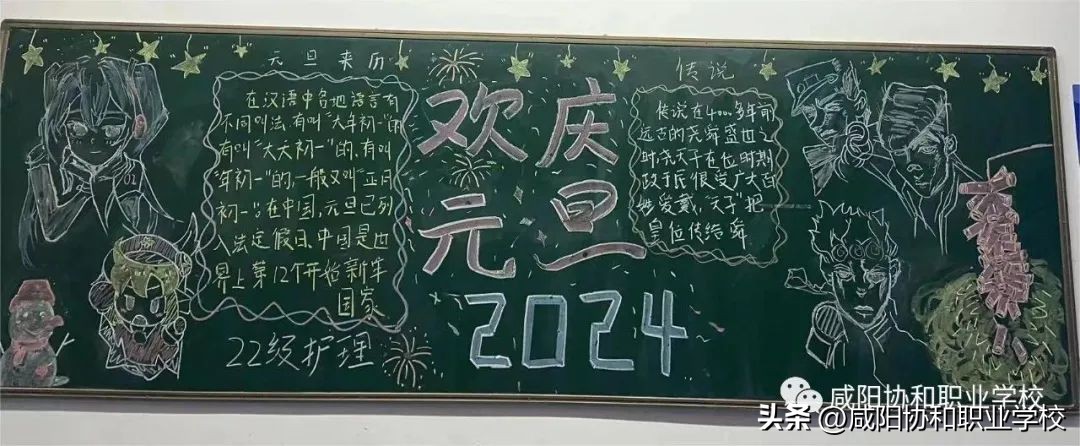 元旦来历
在汉语中各地语言有
不同叫法,有叫“大年初一”的
有叫“大天初一”的,有叫
“年初一”的,一般又叫“正月
初一”。在中国,元旦已列
入法定假日、中国是世
界上第12个开始新年
国家
22级护理
欢庆
元旦
2024
传说
传说在4000多年前
远古的尧舜盛世之
时,尧天子在位时期
政于民很受广大百
姓爱戴,“天子”把
皇位传给舜
咸阳协和职业学校
头条@咸阳协和职业学校